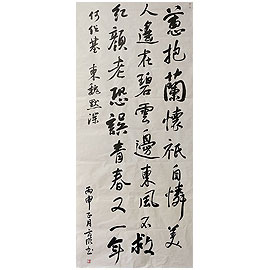 蕙抱蘭懷祇自憐美
人遙在碧雲邊東風不救
紅顏老恐誤青春又一年
何紹基
丙申子月